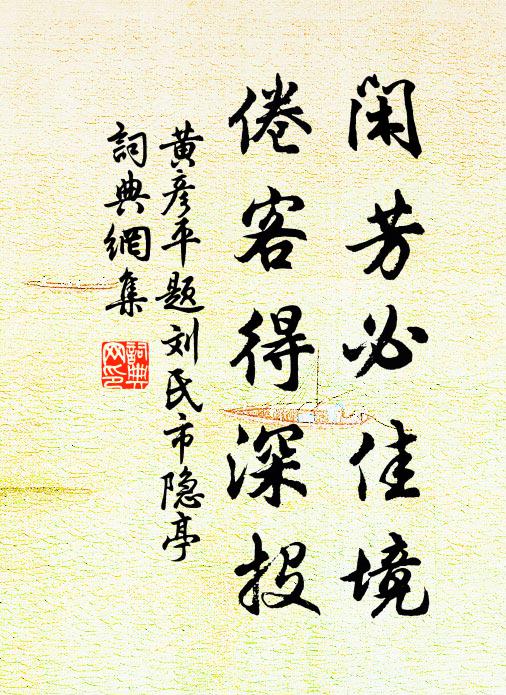 闲芳必佳境
倦客得深投
黄彦平题刘氏市隐亭
詞典網集
詞典网印